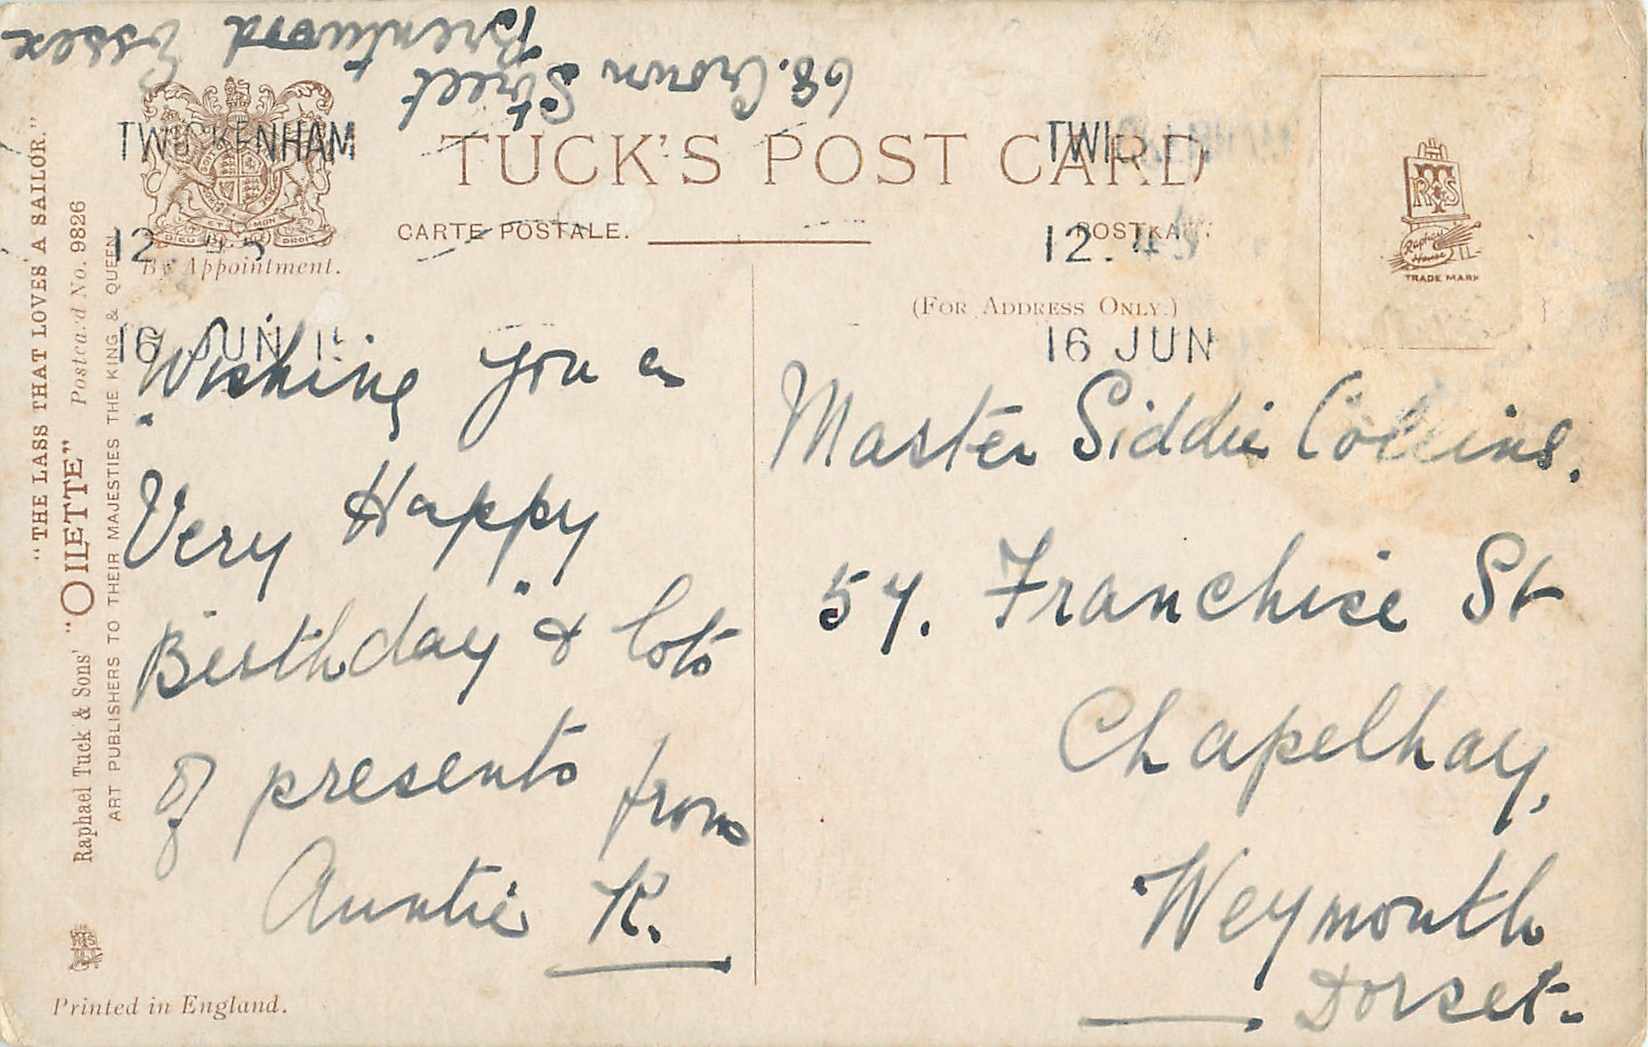 68. Crown Street
Brentwood Essex
TWICKENHAM
12.
16 JUN
TWIC
12.
16 JUN
TUCK'S POST CARD
CARTE POSTALE.
POSTKA
(FOR ADDRESS ONLY.)
DIEU ET MON DROIT
By Appointment.
"THE LASS THAT LOVES A SAILOR."
Raphael Tuck & Sons' "OILETTE" Postcard No. 9826
ART PUBLISHERS TO THEIR MAJESTIES THE KING & QUEEN
Printed in England.
RTS
Raphael House
TRADE MARK
"Wishing you a
Very Happy
Birthday" & lots
of presents from
Auntie K.
Master Siddie Collins.
57. Franchise St
Chapelhay,
Weymouth
Dorset.